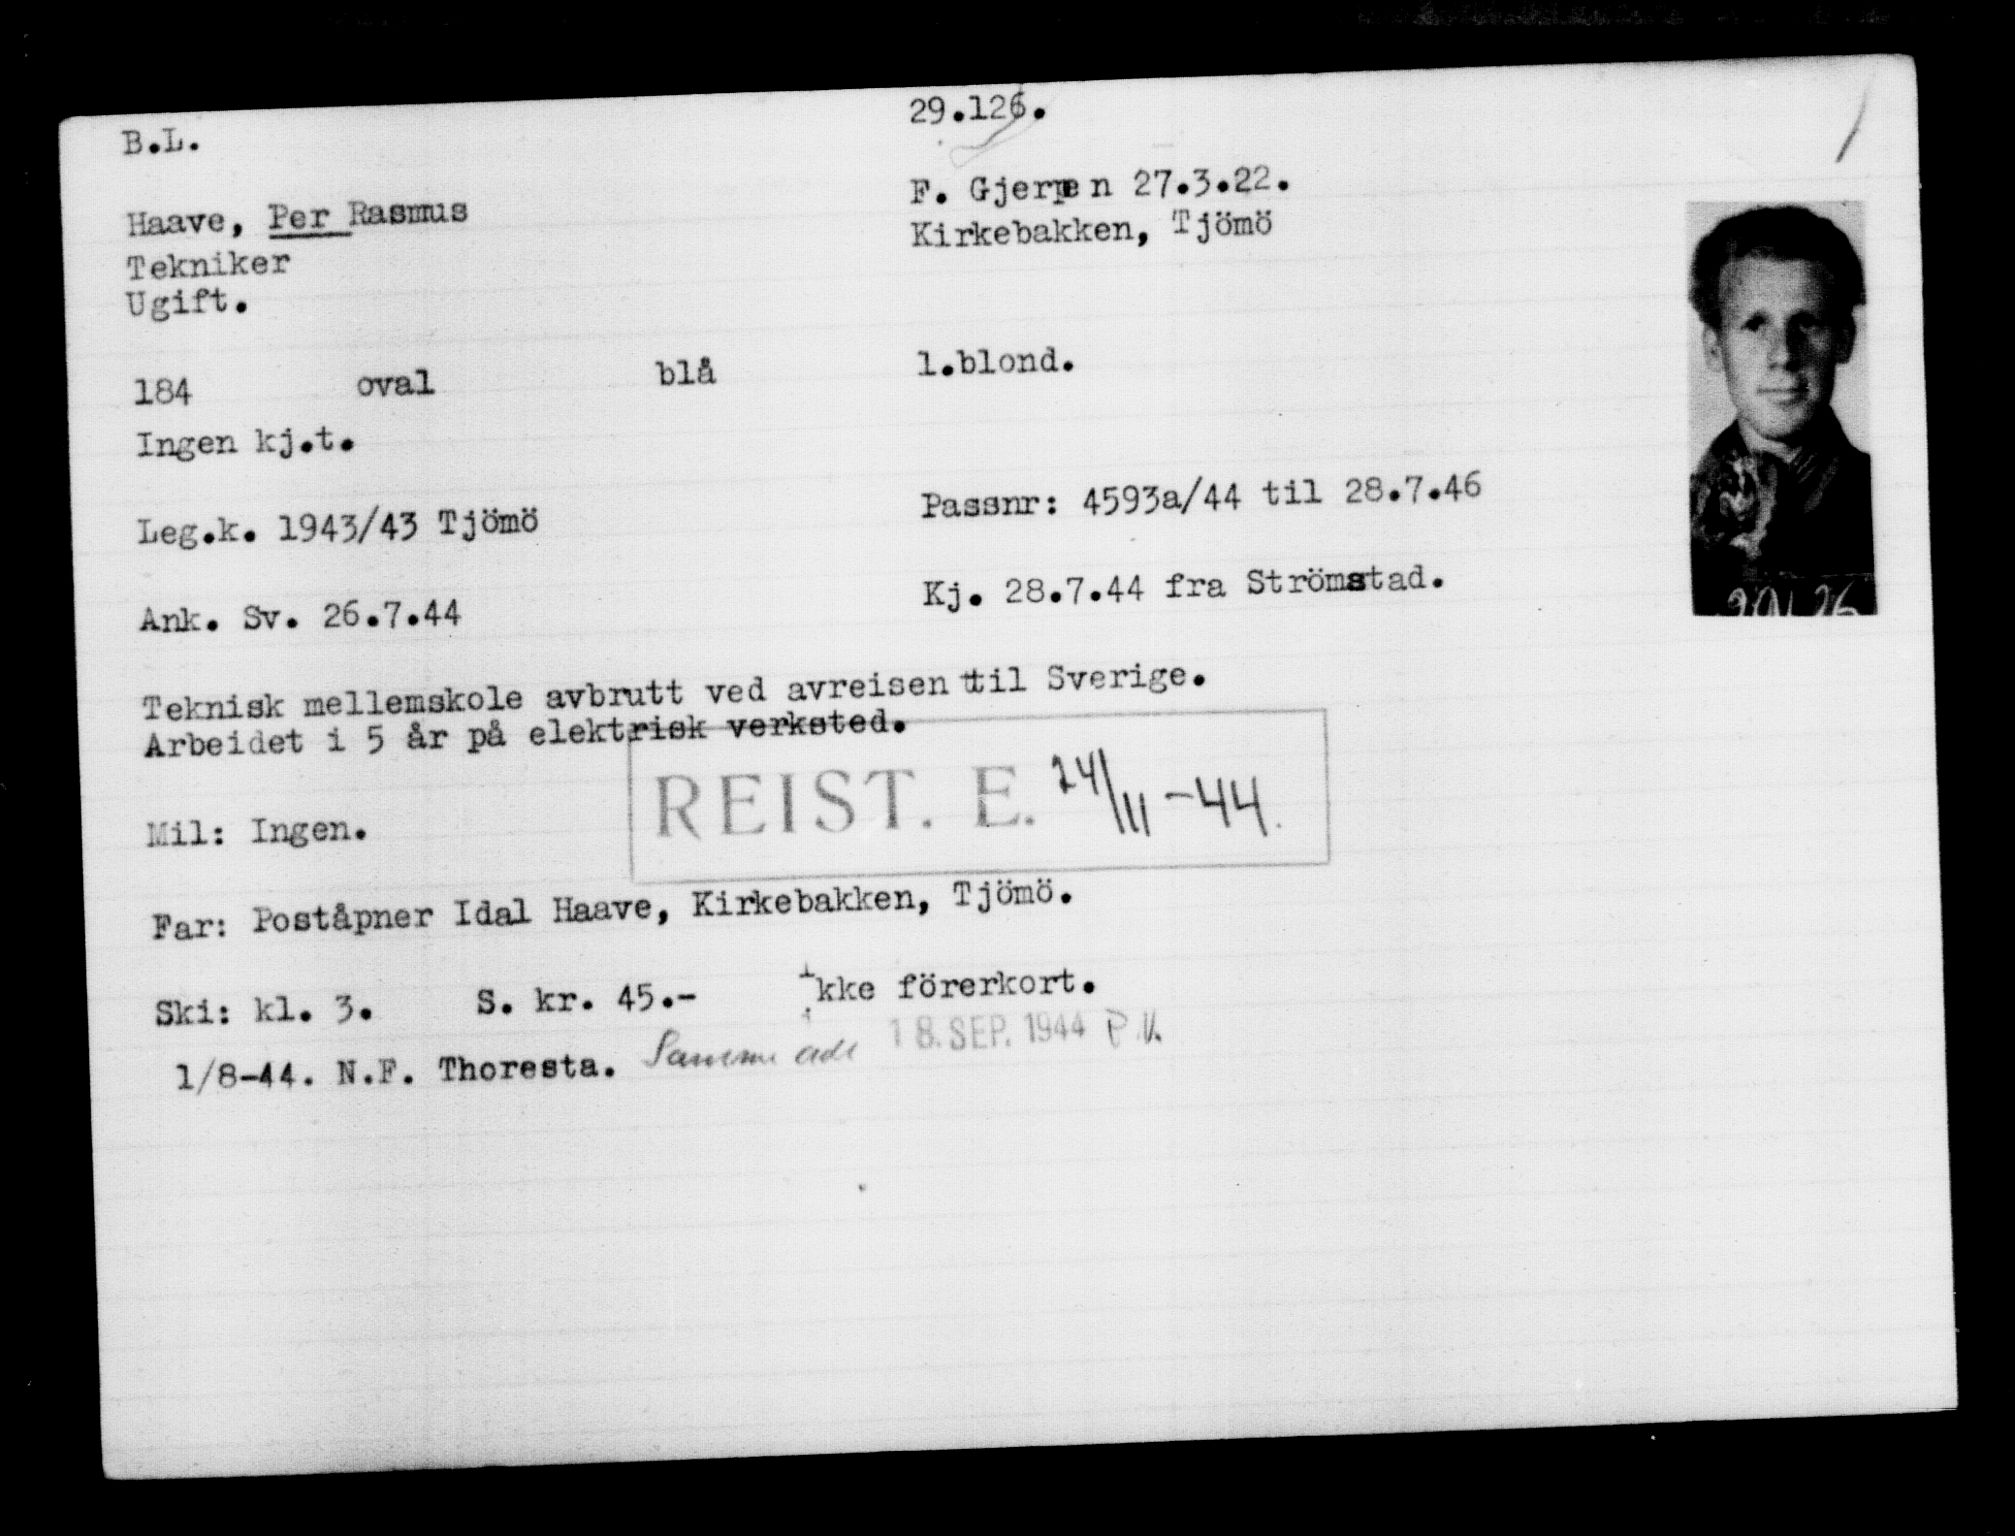 B.L.
29.126.
Haave, Per Rasmus
F. Gjerpen 27.3.22.
Tekniker
Kirkebakken, Tjömö
Ugift.
184 oval blå l.blond.
Ingen kj.t.
Leg.k. 1943/43 Tjömö
Passnr: 4593a/44 til 28.7.46
Ank. Sv. 26.7.44
Kj. 28.7.44 fra Strömstad.
Teknisk mellemskole avbrutt ved avreisen til Sverige.
Arbeidet i 5 år på elektrisk verksted.
REIST. E. 24/11-44.
Mil: Ingen.
Far: Poståpner Idal Haave, Kirkebakken, Tjömö.
Ski: kl. 3. S. kr. 45.- Ikke förerkort.
1/8-44. N.F. Thoresta. Samme adr 18. SEP. 1944 P.V.
29126